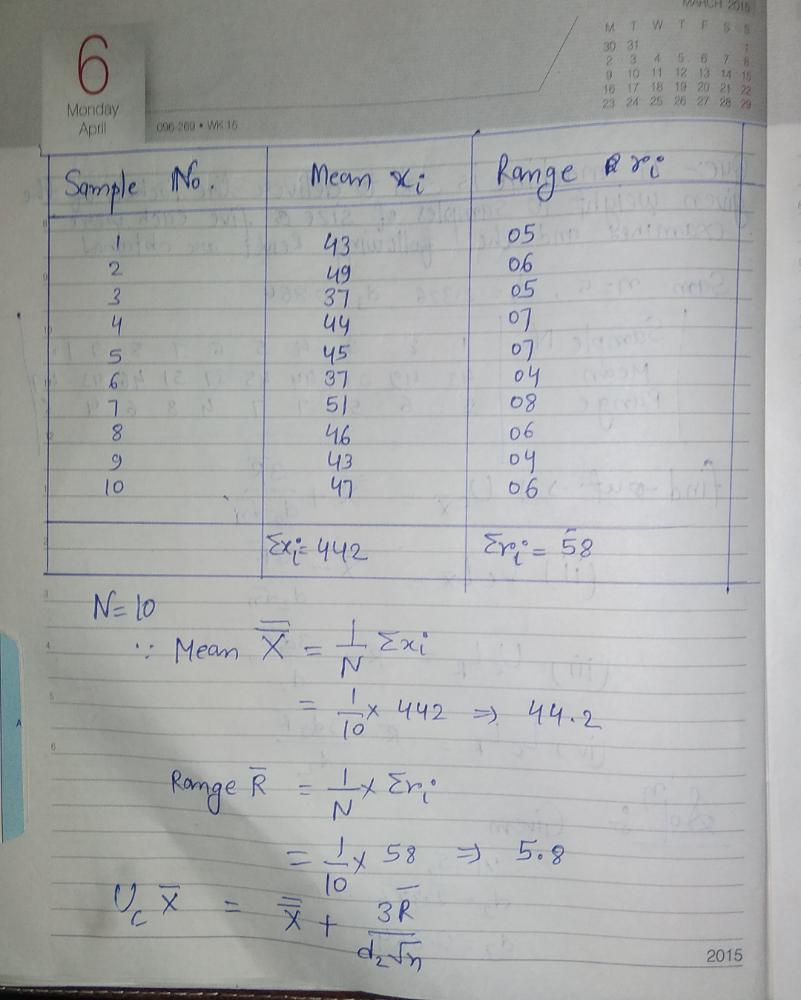 MARCH 2015
M T W T F S S
30 31 1
2 3 4 5 6 7 8
9 10 11 12 13 14 15
16 17 18 19 20 21 22
23 24 25 26 27 28 29
6
Monday
April
096-269 • WK 15
Sample No. Mean xi Range ri
1 43 05
2 49 06
3 37 05
4 44 07
5 45 07
6 37 04
7 51 08
8 46 06
9 43 04
10 47 06
Σxi = 442 Σri = 58
N = 10
∵ Mean X̿ = 1/N Σxi
= 1/10 × 442 ⇒ 44.2
Range R̄ = 1/N × Σri
= 1/10 × 58 ⇒ 5.8
Uc X̄ = X̿ + 3R̄/d₂√n
2015